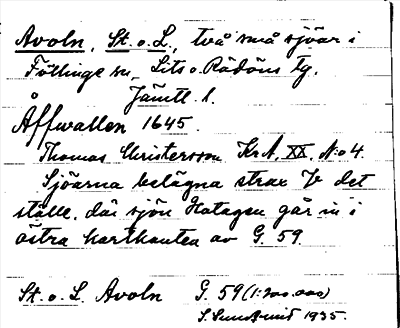 Avoln, St. o. L., två små sjöar i
Föllinge sn, Lits o. Rödöns tg.
Jämtl. l.
Åffwallen 1645.
Thomas Christersson KrA, XX, N:o 4.
Sjöarna belägna strax V det
ställe, där sjön Hotagen går in i
östra kartkanten av G. 59.
St. o. L. Avoln G. 59 (1:200.000)
1935.